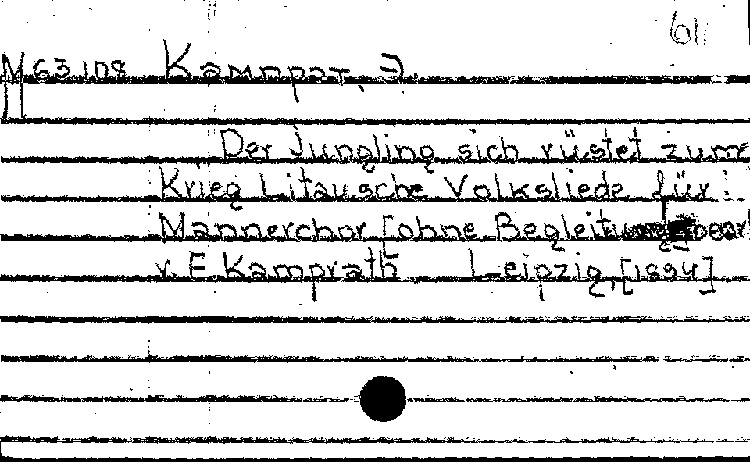 61
M 63 108 Kamprat, E.
Der Jüngling sich rüstet zum
Krieg Litausche Volksliede für
Männerchor [ohne Begleitung] bear
v. E Kamprath Leipzig, [1894]